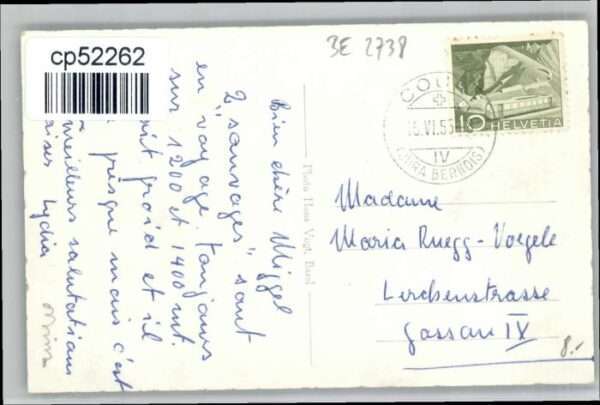 cp52262
BE 2738
Bien chère Miggel
2 "sauvages" sont
en voyage. Toujours
sur 1200 et 1400 mt.
froid et il
presque mais c'est
meilleurs salutations
Lydia
Photo Hans Vogt, Basel
COU
VI.55
IV
(JURA BERNOIS)
10
HELVETIA
Madame
Maria Ruegg-Voegele
Lerchenstrasse
Gossau IX
8.-